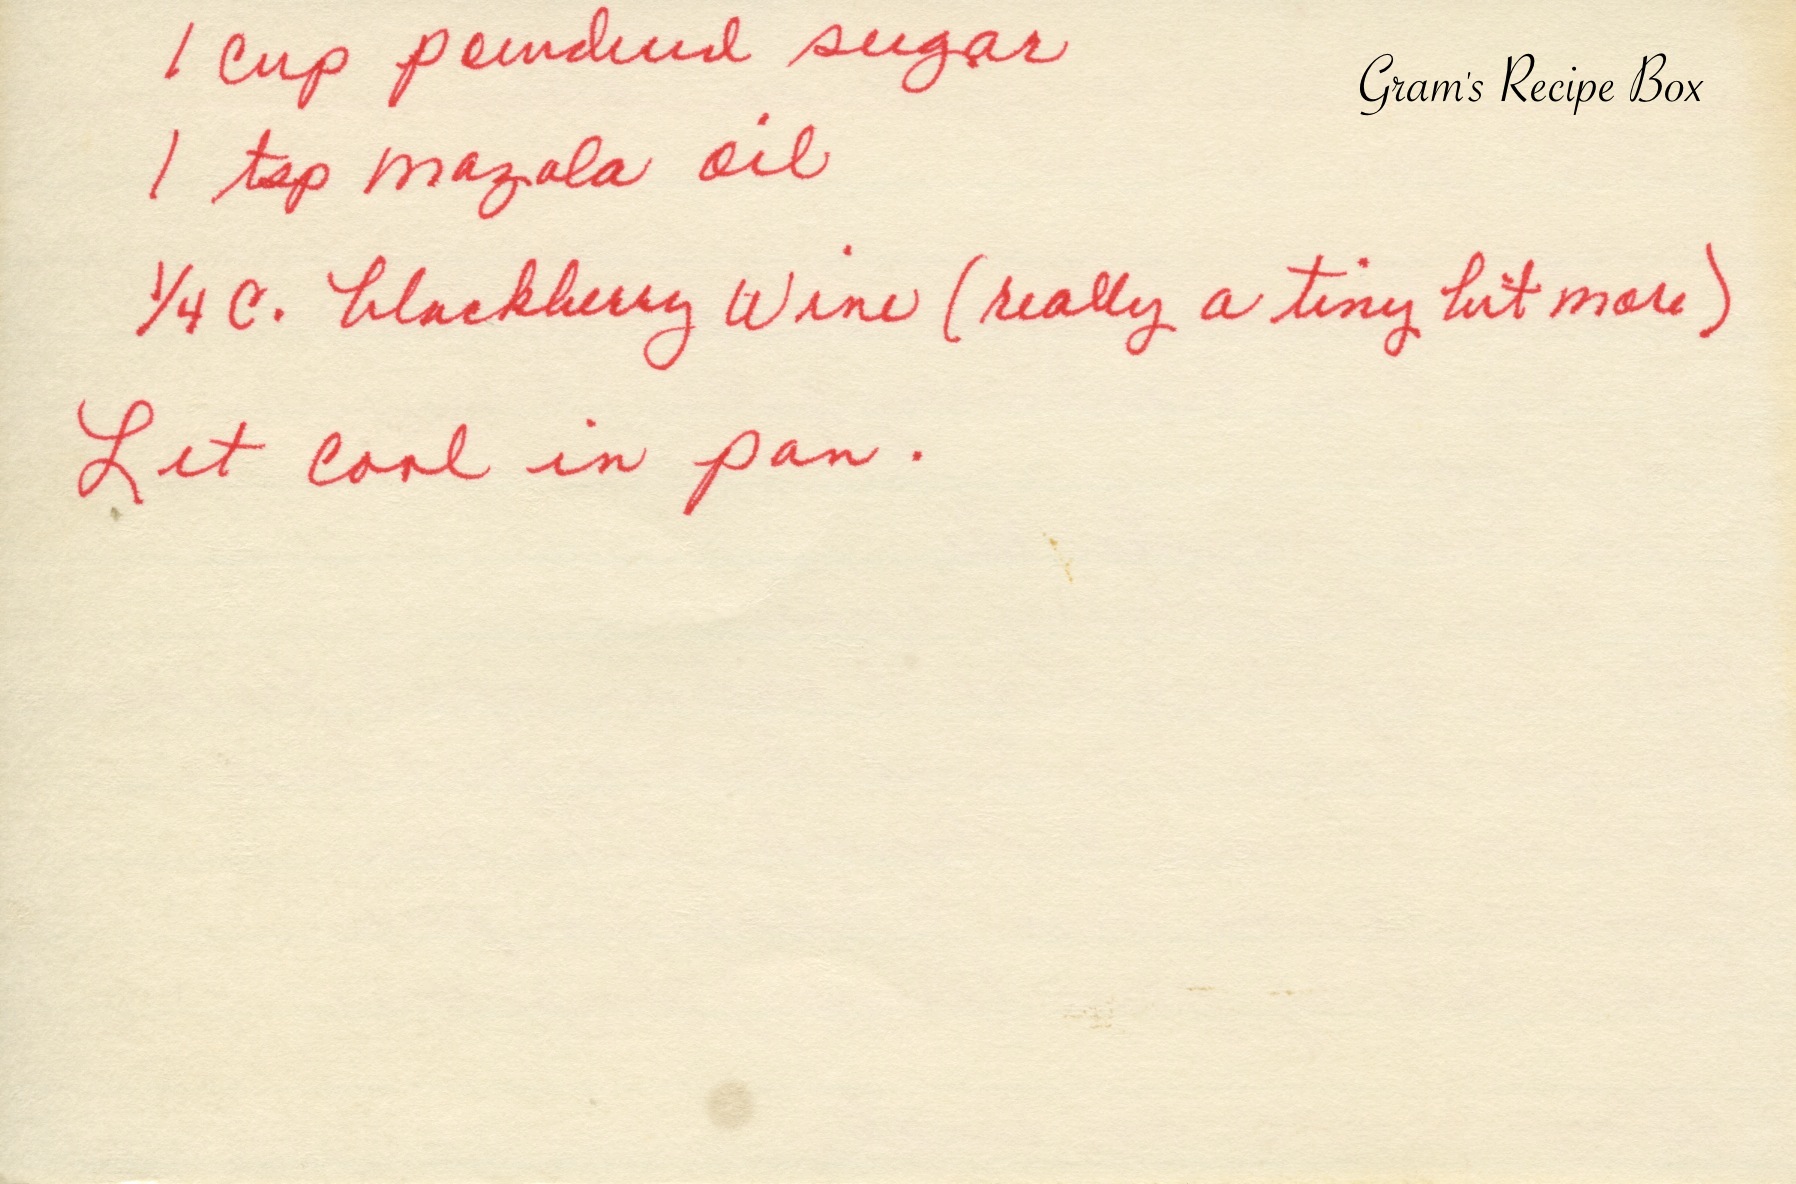 1 cup powdered sugar
Gram's Recipe Box
1 tsp mazola oil
1/4 c. blackberry wine (really a tiny bit more)
Let cool in pan.